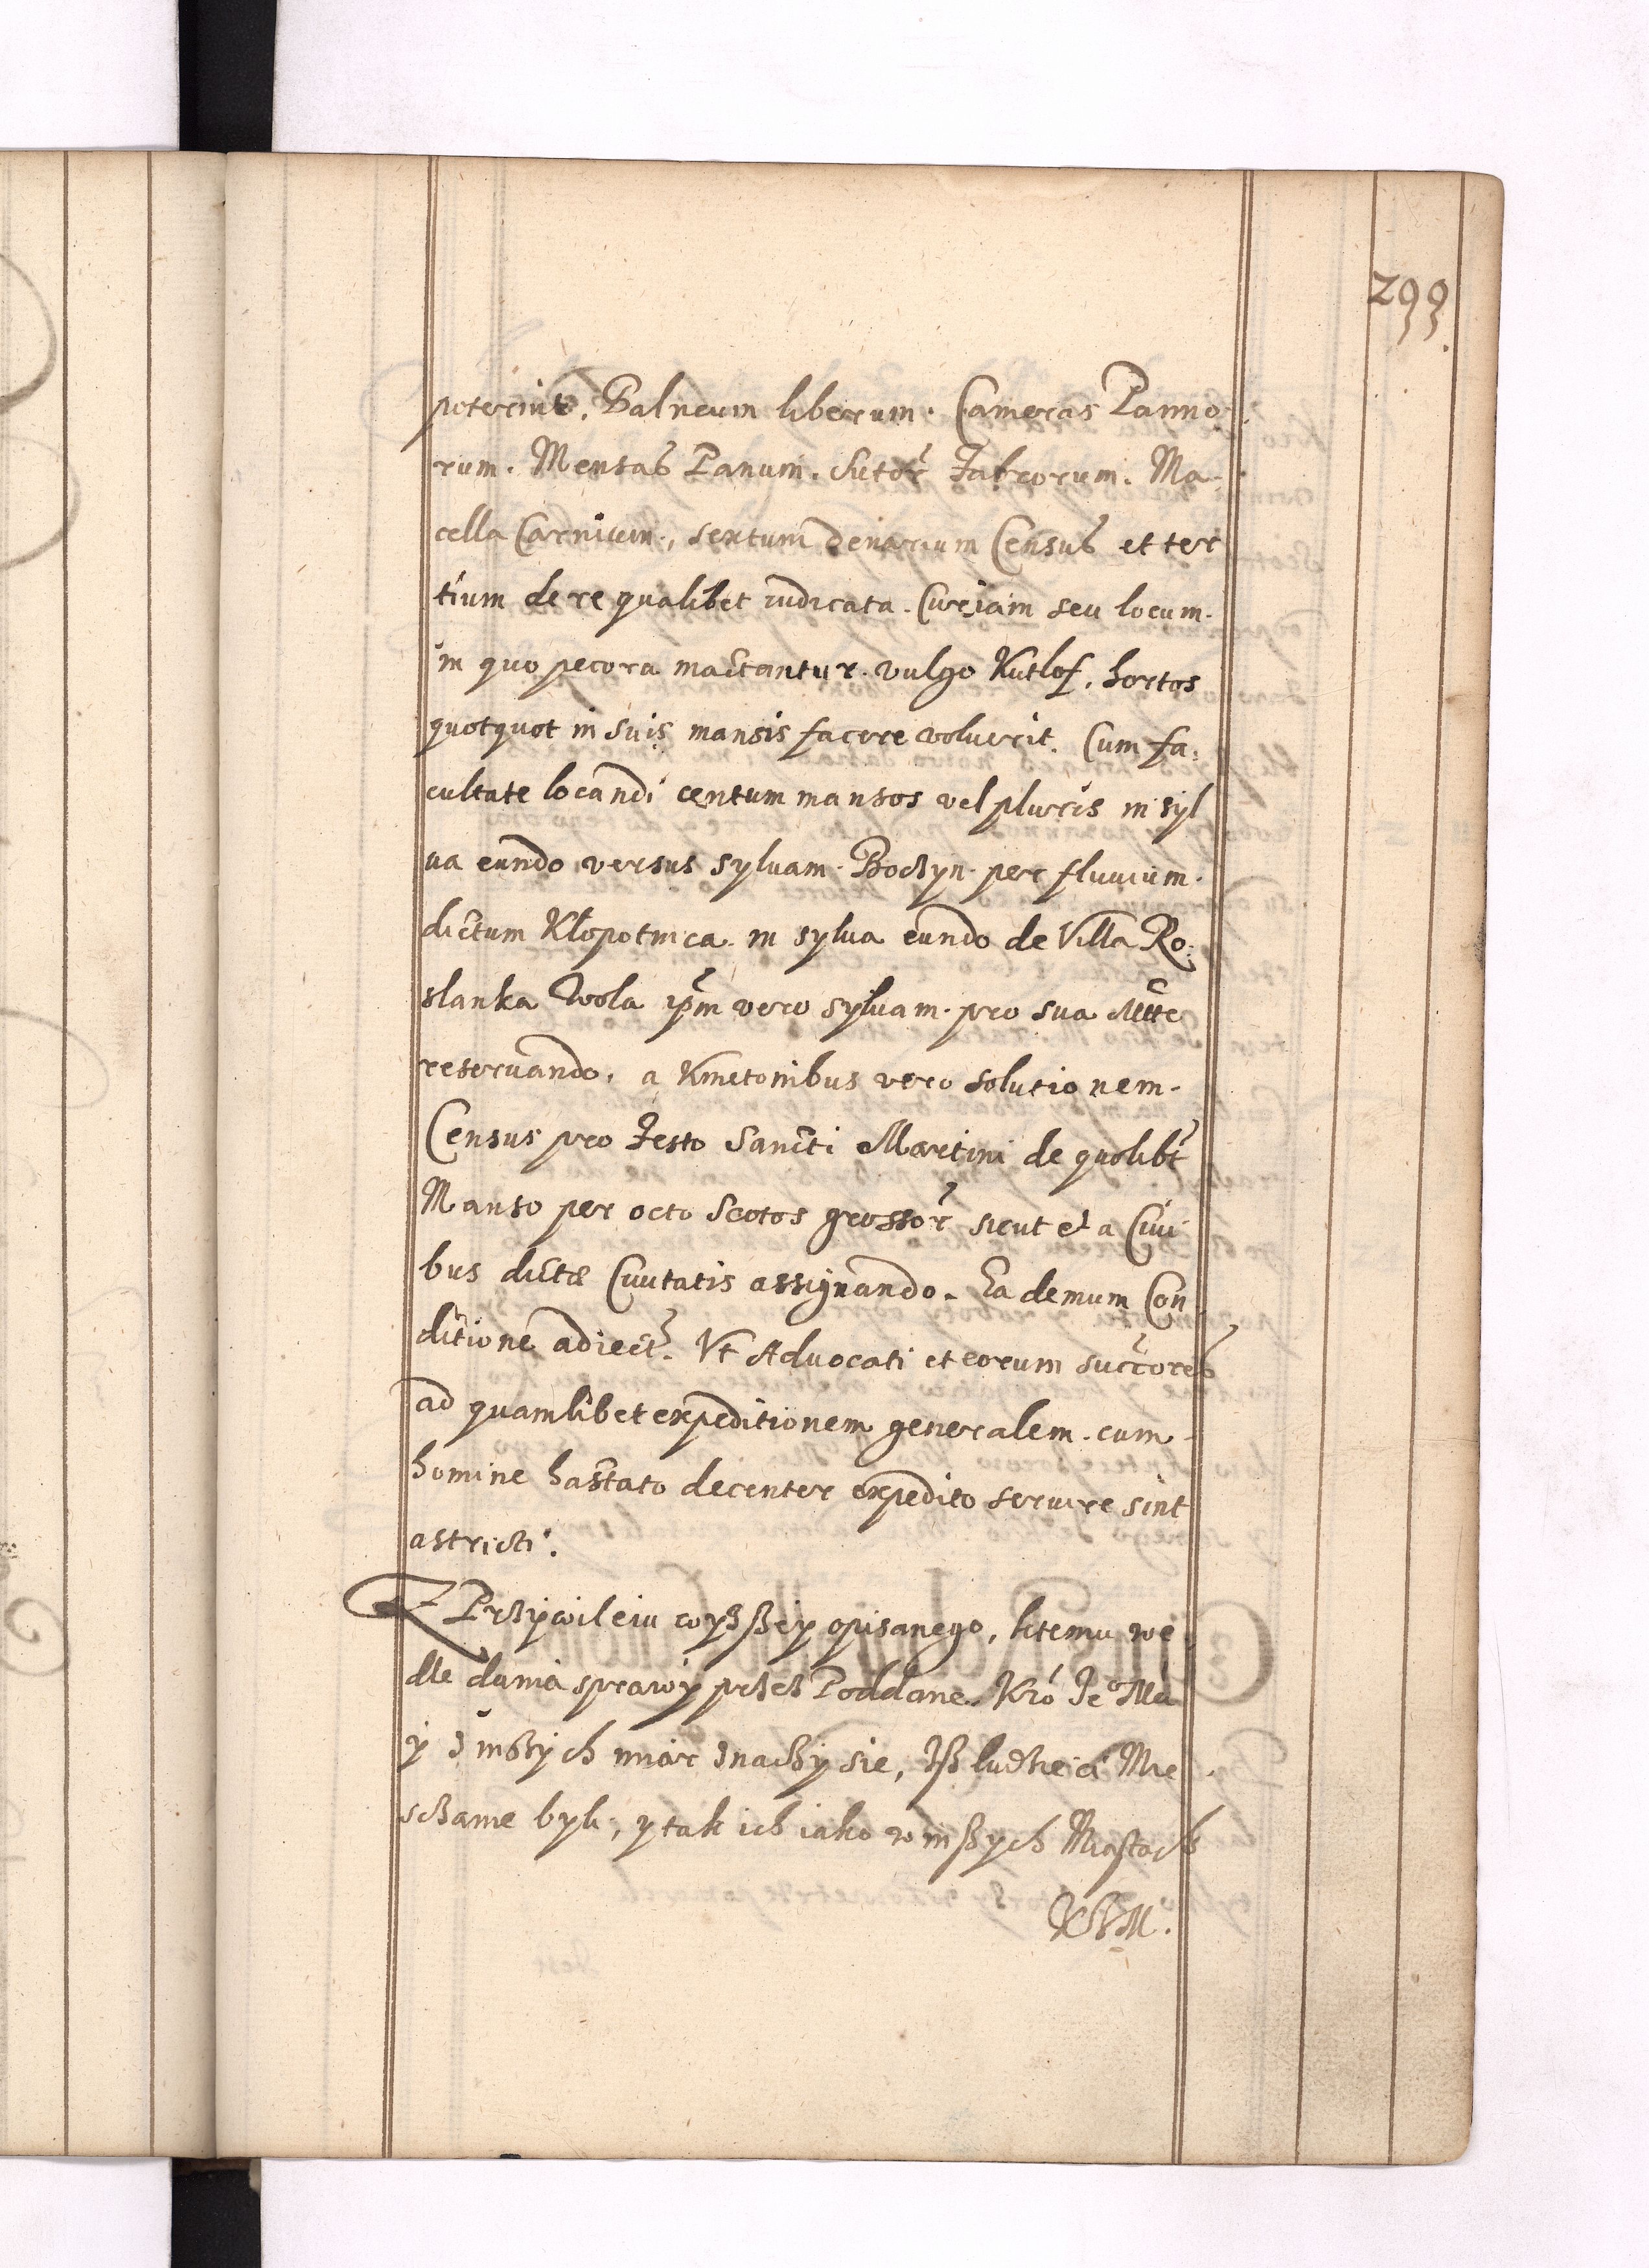 299.
poterint. Balneum liberum. Cameras Panno
rum. Mensas Panum. Sutor̃ Fabrorum. Ma-
cella Carnium., sextum denarium Census et ter
tium de re qualibet iudicata. Curiam seu locum.
in quo pecora mactantur. vulgo Kutlof, hortos
quotquot in suis mansis facere voluerit. Cum fa,
cultate locandi centum mansos vel pluris in syl
ua eundo versus sylvam. Boczyn. per fluuium.
dictum Kłopotnica. in sylua eundo de Villa Ro,
slanka Wola ip̃m vero syluam. pro sua Mtte
reseruando. a Kmetonibus vero solutionem.
Census pro Festo Sancti Martini de quolibt
Manso per octo Scotos grossor̃ sicut et a Ciui
bus dictæ Ciuitatis assignando. Ea demum Con
ditione adiect. Vt Aduocati et eorum succores
ad quamlibet expeditionem generalem. cum
homine hastato decenter expedito seruire sint
astricti.
Z Przywileiu wyzßey opisanego, ktemu we
dle dania sprawy przez Poddane Kró Je Mci
y z inßych miar znaczy sie, Iß ludzie ci Mie
sczanie byli, y tak ich iako w inßych Miastach